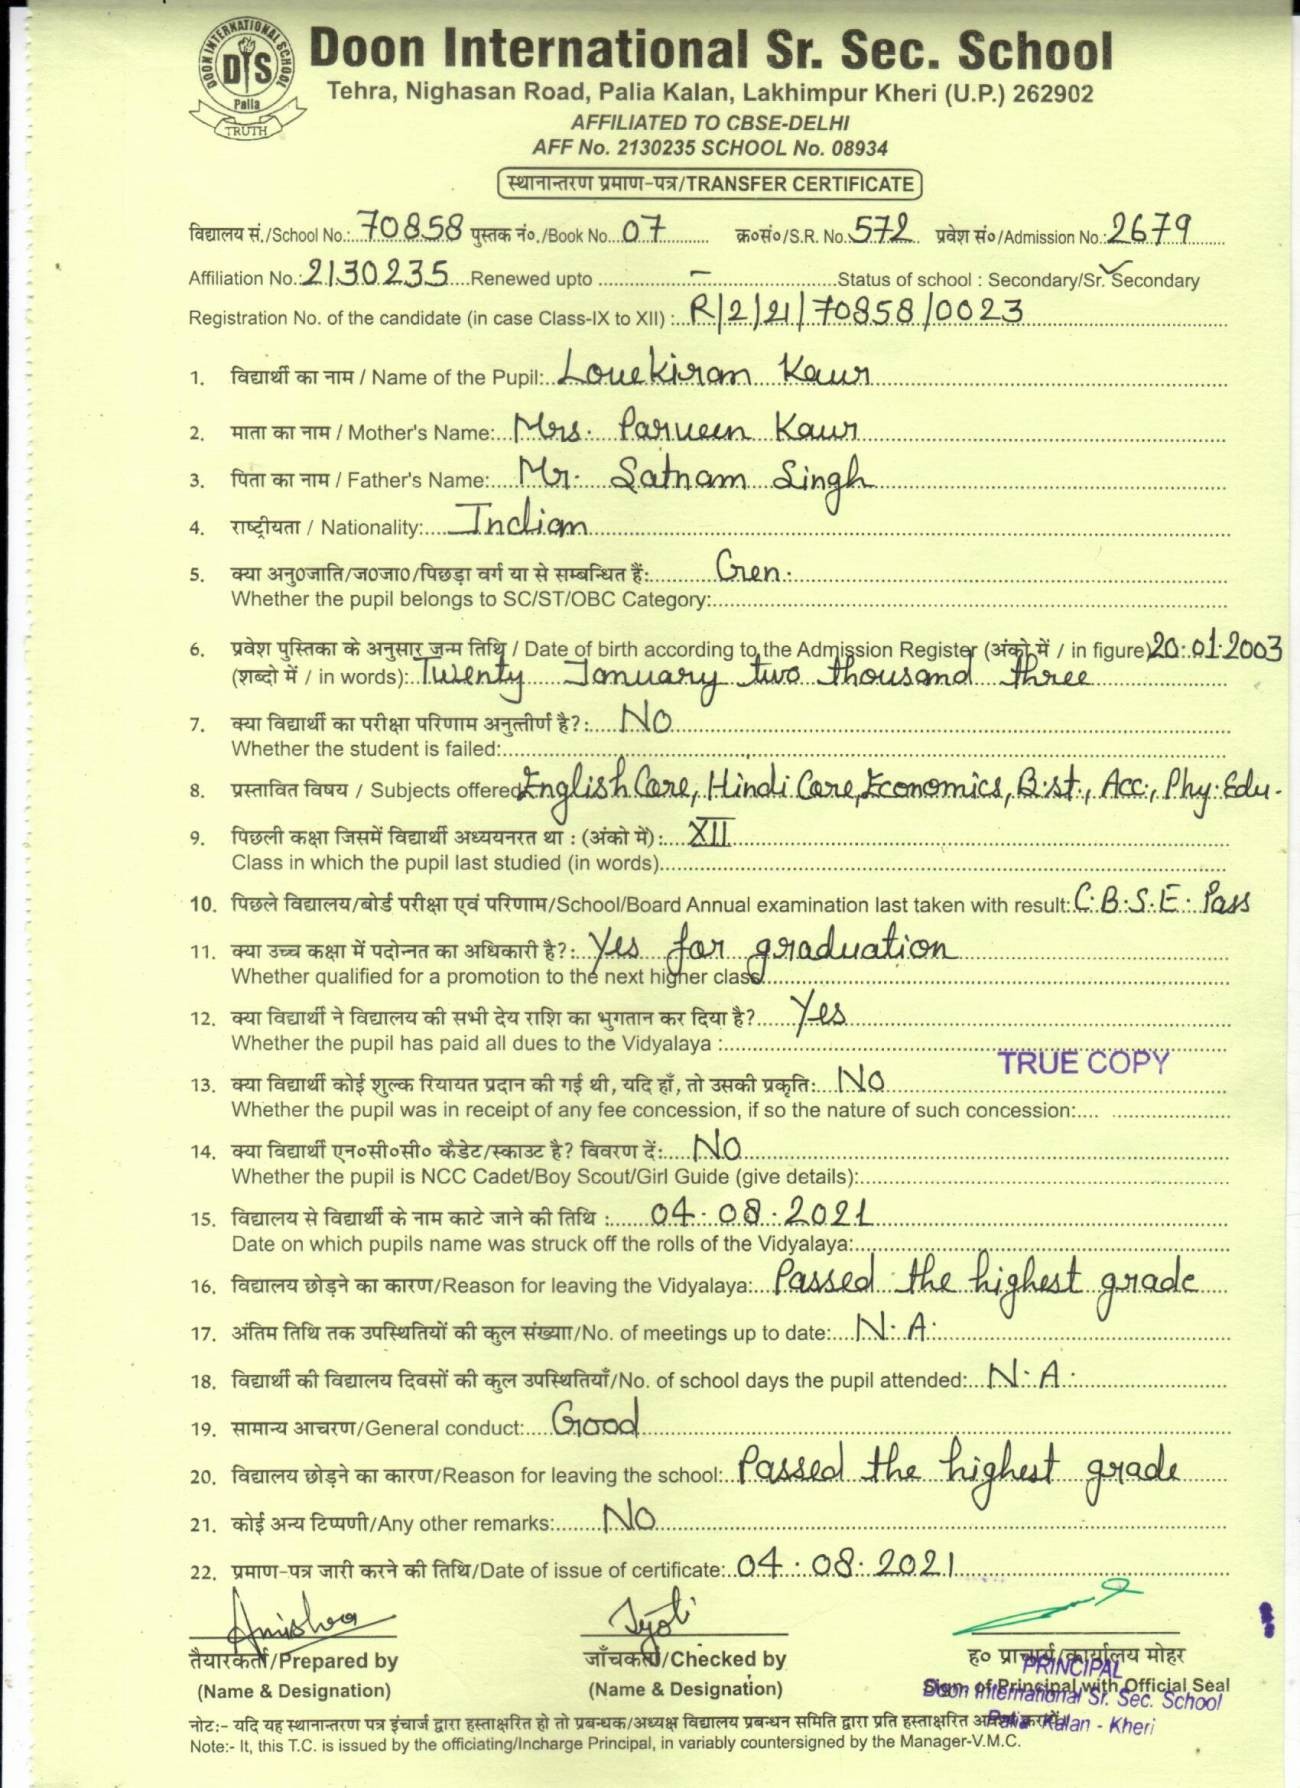 DOON INTERNATIONAL SCHOOL
DIS
Palia
TRUTH
Doon International Sr. Sec. School
Tehra, Nighasan Road, Palia Kalan, Lakhimpur Kheri (U.P.) 262902
AFFILIATED TO CBSE-DELHI
AFF No. 2130235 SCHOOL No. 08934
स्थानान्तरण प्रमाण-पत्र/TRANSFER CERTIFICATE
विद्यालय सं./School No.: 70858 पुस्तक नं०./Book No. 07 क्र०सं०/S.R. No. 572 प्रवेश सं०/Admission No.: 2679
Affiliation No.: 2130235 Renewed upto – Status of school : Secondary/Sr. Secondary
Registration No. of the candidate (in case Class-IX to XII) : R/2/21/70858/0023
1. विद्यार्थी का नाम / Name of the Pupil: Lovekiran Kaur
2. माता का नाम / Mother's Name: Mrs. Parveen Kaur
3. पिता का नाम / Father's Name: Mr. Satnam Singh
4. राष्ट्रीयता / Nationality: Indian
5. क्या अनु०जाति/ज०जा०/पिछड़ा वर्ग या से सम्बन्धित हैं: Gen.
Whether the pupil belongs to SC/ST/OBC Category:
6. प्रवेश पुस्तिका के अनुसार जन्म तिथि / Date of birth according to the Admission Register (अंको में / in figure) 20.01.2003
(शब्दो में / in words): Twenty January two thousand three
7. क्या विद्यार्थी का परीक्षा परिणाम अनुत्तीर्ण है?: No
Whether the student is failed:
8. प्रस्तावित विषय / Subjects offered English Core, Hindi Core, Economics, B.st., Acc., Phy. Edu.
9. पिछली कक्षा जिसमें विद्यार्थी अध्ययनरत था : (अंको में): XII
Class in which the pupil last studied (in words)
10. पिछले विद्यालय/बोर्ड परीक्षा एवं परिणाम/School/Board Annual examination last taken with result: C.B.S.E. Pass
11. क्या उच्च कक्षा में पदोन्नत का अधिकारी है?: Yes for graduation
Whether qualified for a promotion to the next higher class
12. क्या विद्यार्थी ने विद्यालय की सभी देय राशि का भुगतान कर दिया है? Yes
Whether the pupil has paid all dues to the Vidyalaya :
TRUE COPY
13. क्या विद्यार्थी कोई शुल्क रियायत प्रदान की गई थी, यदि हाँ, तो उसकी प्रकृति: No
Whether the pupil was in receipt of any fee concession, if so the nature of such concession:
14. क्या विद्यार्थी एन०सी०सी० कैडेट/स्काउट है? विवरण दें: No
Whether the pupil is NCC Cadet/Boy Scout/Girl Guide (give details):
15. विद्यालय से विद्यार्थी के नाम काटे जाने की तिथि : 04.08.2021
Date on which pupils name was struck off the rolls of the Vidyalaya:
16. विद्यालय छोड़ने का कारण/Reason for leaving the Vidyalaya: Passed the highest grade
17. अंतिम तिथि तक उपस्थितियों की कुल संख्या/No. of meetings up to date: N.A.
18. विद्यार्थी की विद्यालय दिवसों की कुल उपस्थितियाँ/No. of school days the pupil attended: N.A.
19. सामान्य आचरण/General conduct: Good
20. विद्यालय छोड़ने का कारण/Reason for leaving the school: Passed the highest grade
21. कोई अन्य टिप्पणी/Any other remarks: No
22. प्रमाण-पत्र जारी करने की तिथि/Date of issue of certificate: 04.08.2021
Jyoti
तैयारकर्ता/Prepared by जाँचकर्ता/Checked by ह० प्राचार्य/कार्यालय मोहर
(Name & Designation) (Name & Designation) Sign. of Principal with Official Seal
PRINCIPAL
Doon International Sr. Sec. School
Palia Kalan - Kheri
नोट:- यदि यह स्थानान्तरण पत्र इंचार्ज द्वारा हस्ताक्षरित हो तो प्रबन्धक/अध्यक्ष विद्यालय प्रबन्धन समिति द्वारा प्रति हस्ताक्षरित
Note:- It, this T.C. is issued by the officiating/Incharge Principal, in variably countersigned by the Manager-V.M.C.